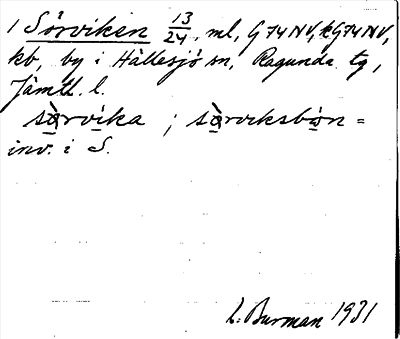 1 Sörviken 13/24, ml, G74NV, kG74NV,
kb, by i Hällesjö sn, Ragunda tg,
Jämtl. l.
sòrvika ; sòrviksbön =
inv. i S.
L. Burman 1931